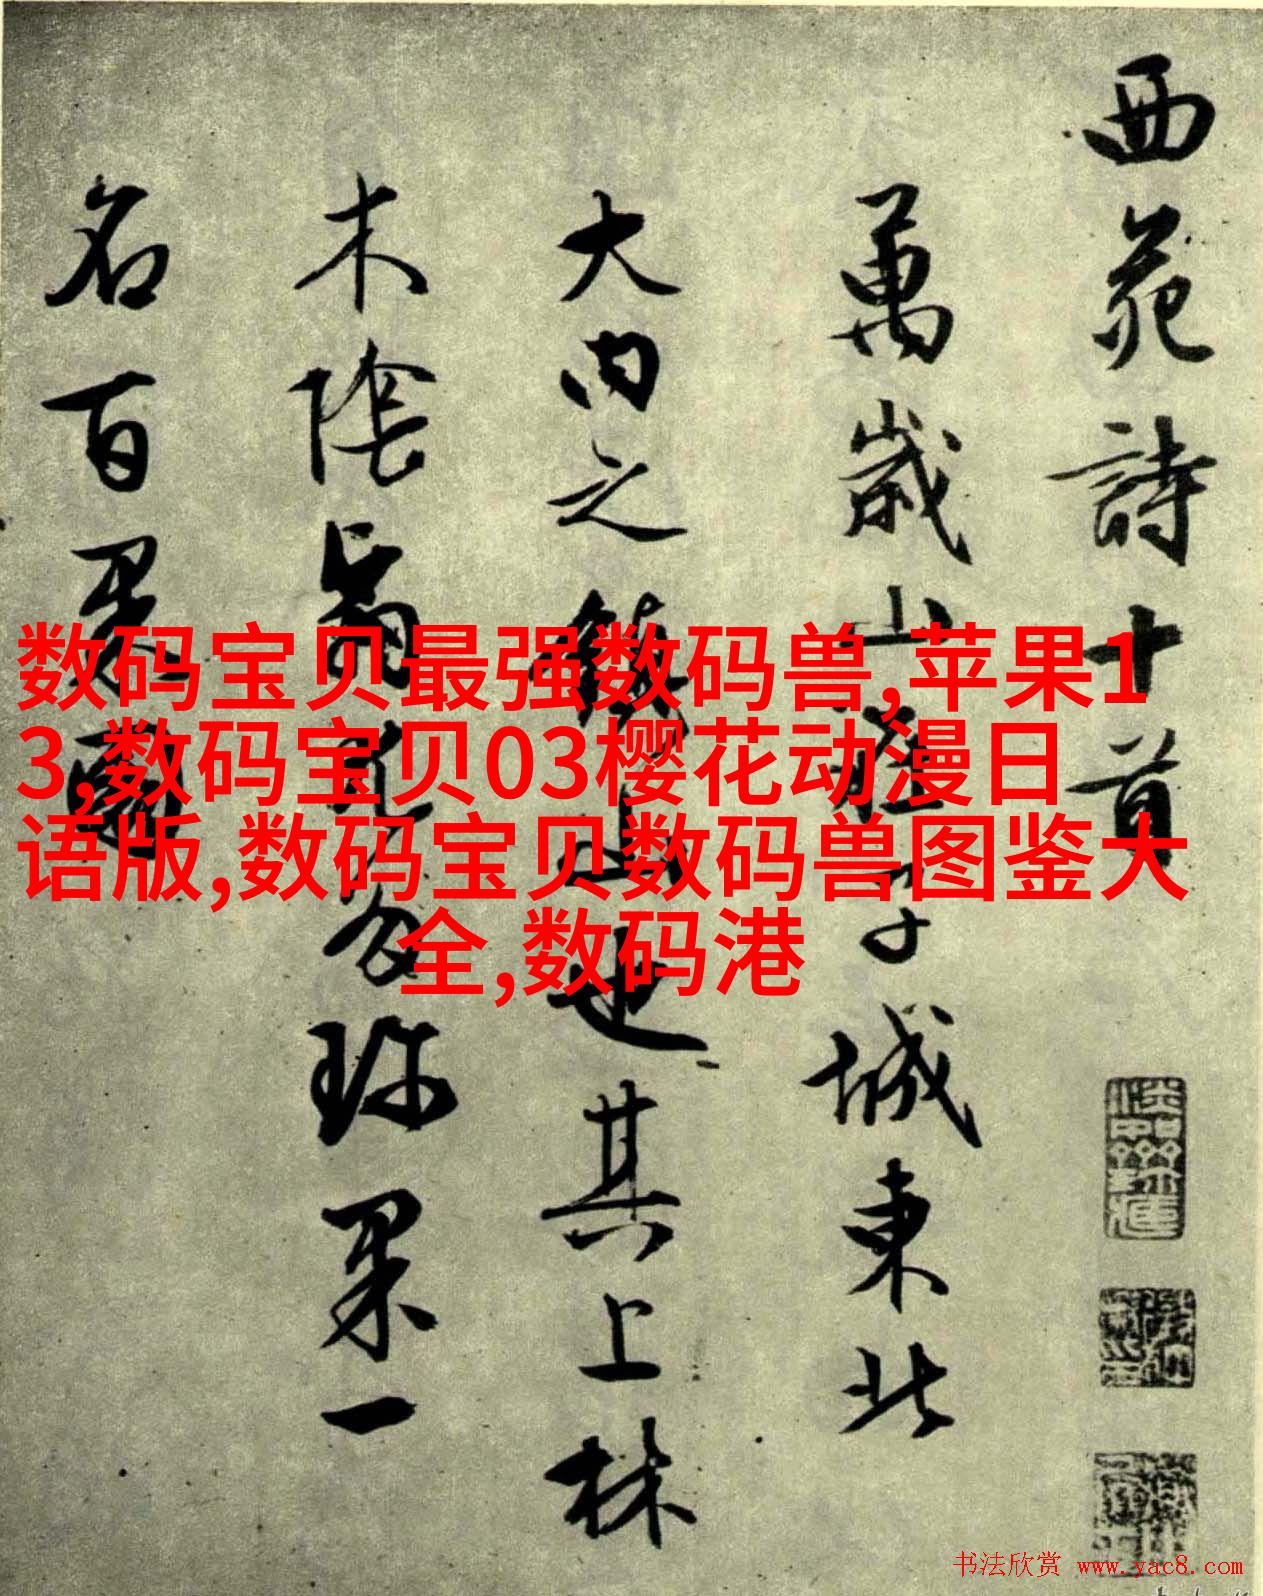 西苑詩十首
萬歲山在子城東北
大內之鎮山也其上林
木陰翳尤多珍果一
名百果園
数码宝贝最强数码兽,苹果1
3,数码宝贝03樱花动漫日
语版,数码宝贝数码兽图鉴大
全,数码港
书法欣赏 www.yac8.com